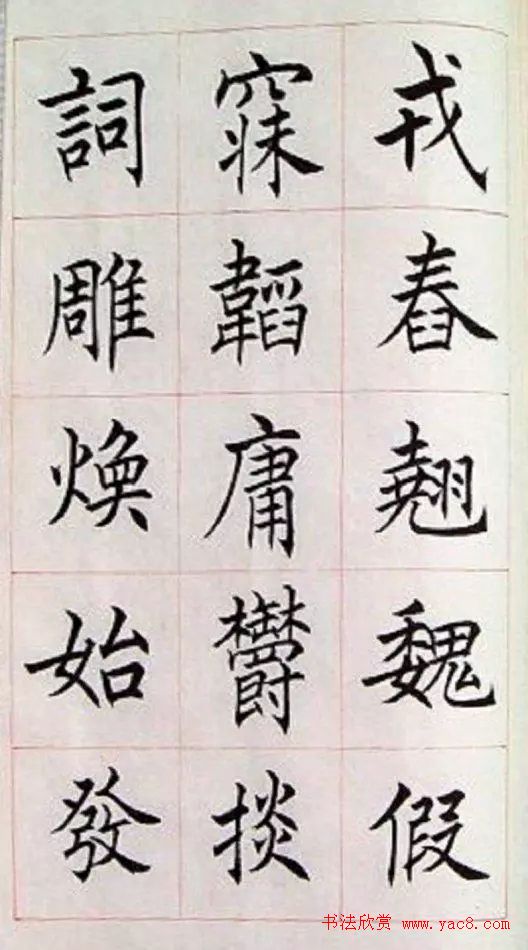 戎舂翹魏假
寐韜庸鬱掞
詞雕煥始發
书法欣赏 www.yac8.com